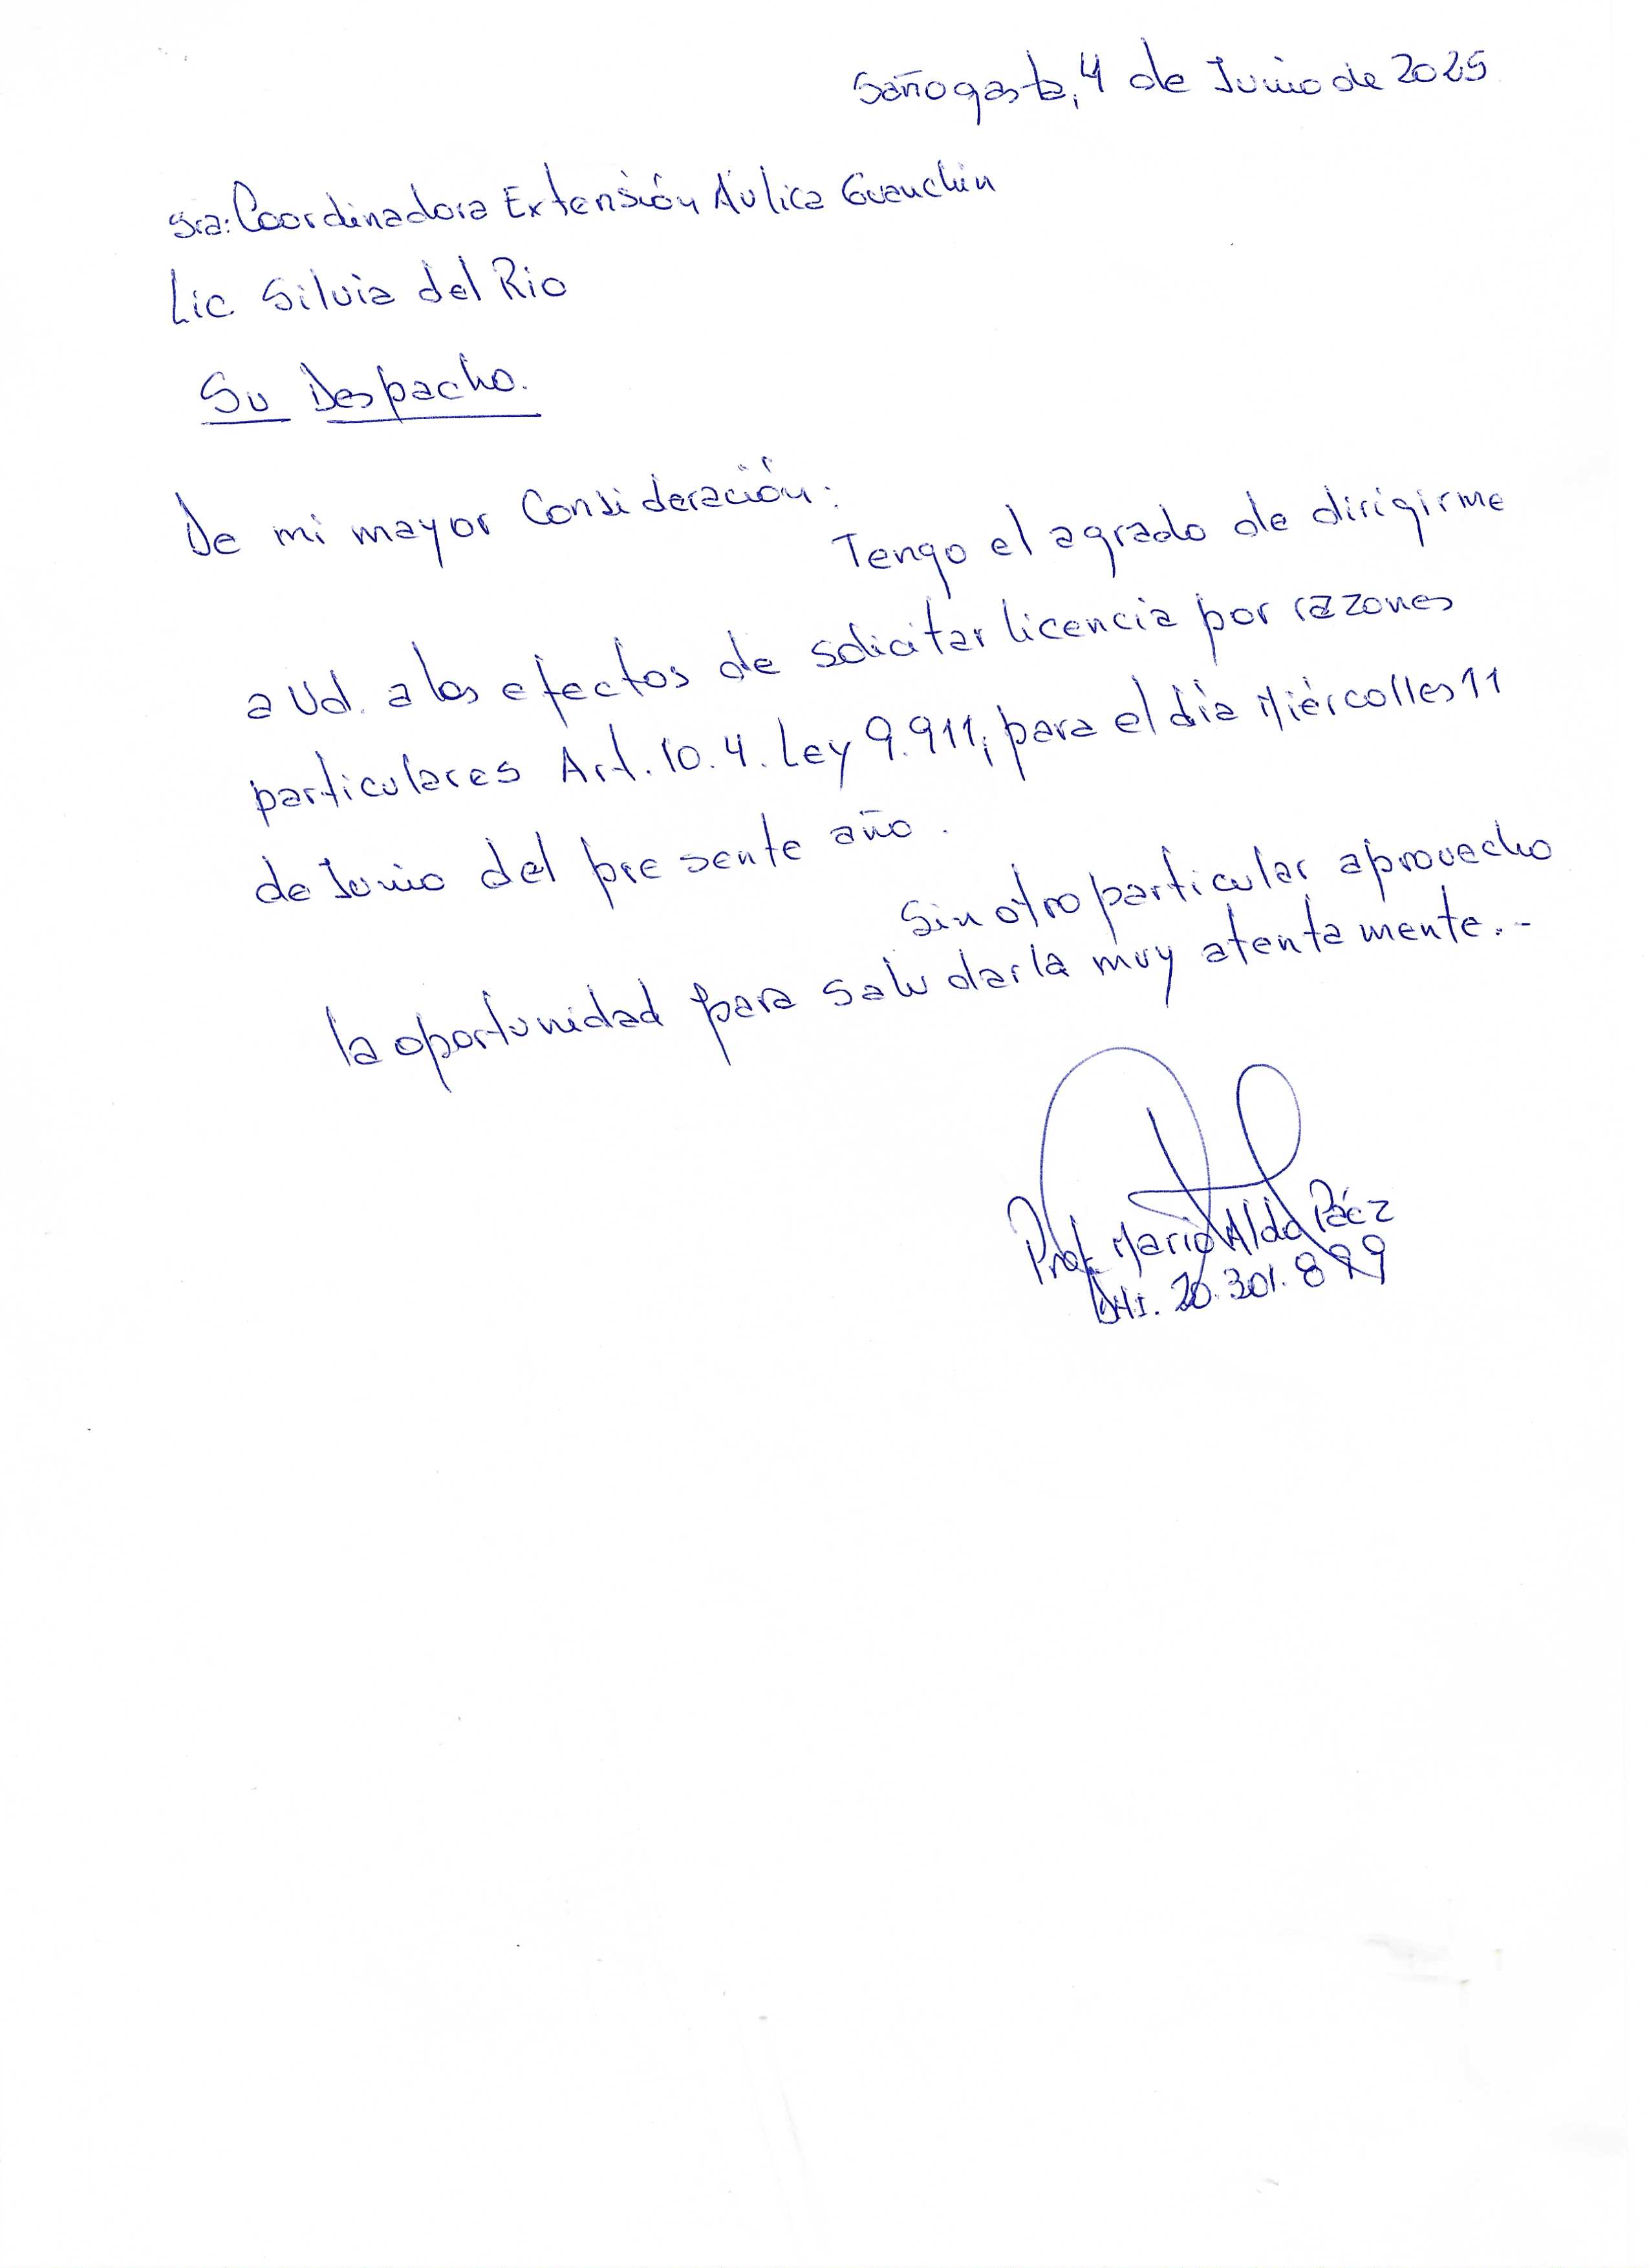 Sañogasta, 4 de Junio de 2025
Sra: Coordinadora Extensión Aulica Guanchin
Lic Silvia del Rio
Su Despacho.
De mi mayor Consideración:
Tengo el agrado de dirigirme
a Ud. a los efectos de solicitar licencia por razones
particulares Art. 10.4. Ley 9.911, para el día Miércolles 11
de Junio del presente año.
Sin otro particular aprovecho
la oportunidad para saludarla muy atentamente.-
Prof. Mario Aldo Páez
DNI. 20.301.899